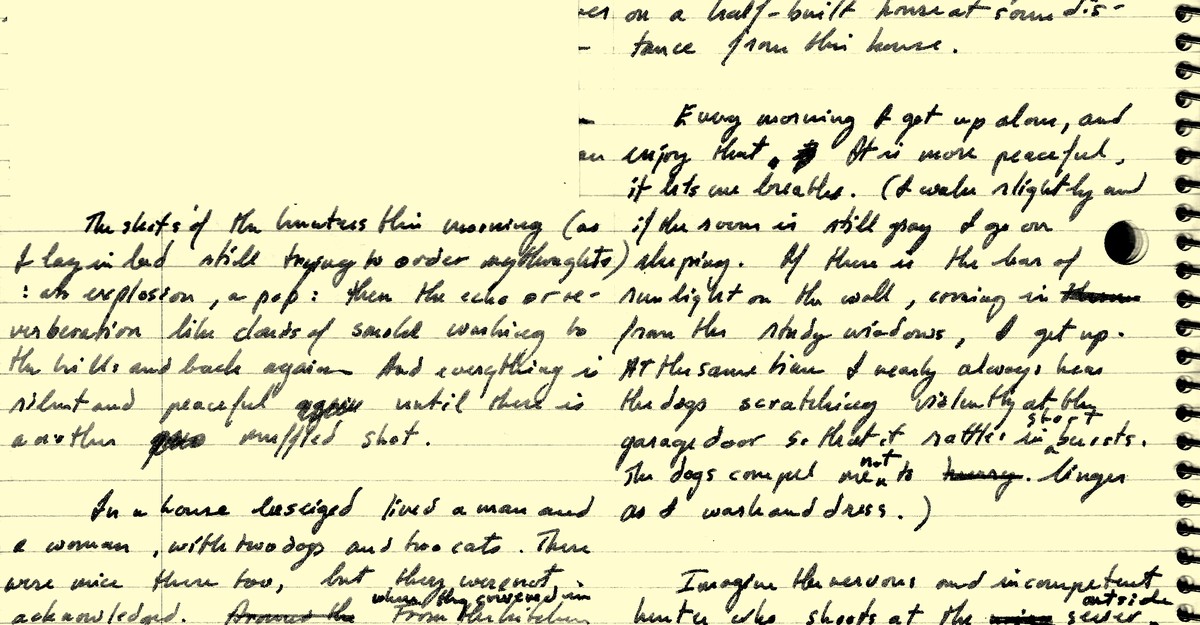 The shots of the hunters this morning (as
I lay in bed still trying to order my thoughts)
: an explosion, a pop: then the echo or re-
verberation like clouds of smoke washing to
the hills and back again. And everything is
silent and peaceful again until there is
another muffled shot.
In a house besieged lived a man and
a woman, with two dogs and two cats. There
were mice there too, but they were not
acknowledged. Around the From the kitchen
where they cowered in
on a half-built house at some dis-
tance from this house.
Every morning I get up alone, and
enjoy that. It is more peaceful,
it lets me breathe. (I wake slightly and
if the room is still gray I go on
sleeping. If there is the bar of
sunlight on the wall, coming in
from the study windows, I get up.
At the same time I nearly always hear
the dogs scratching violently at the
garage door so that it rattles in short bursts.
The dogs compel me not to hurry. linger
as I wash and dress.)
Imagine the nervous and incompetent
hunter who shoots at the sewer
outside